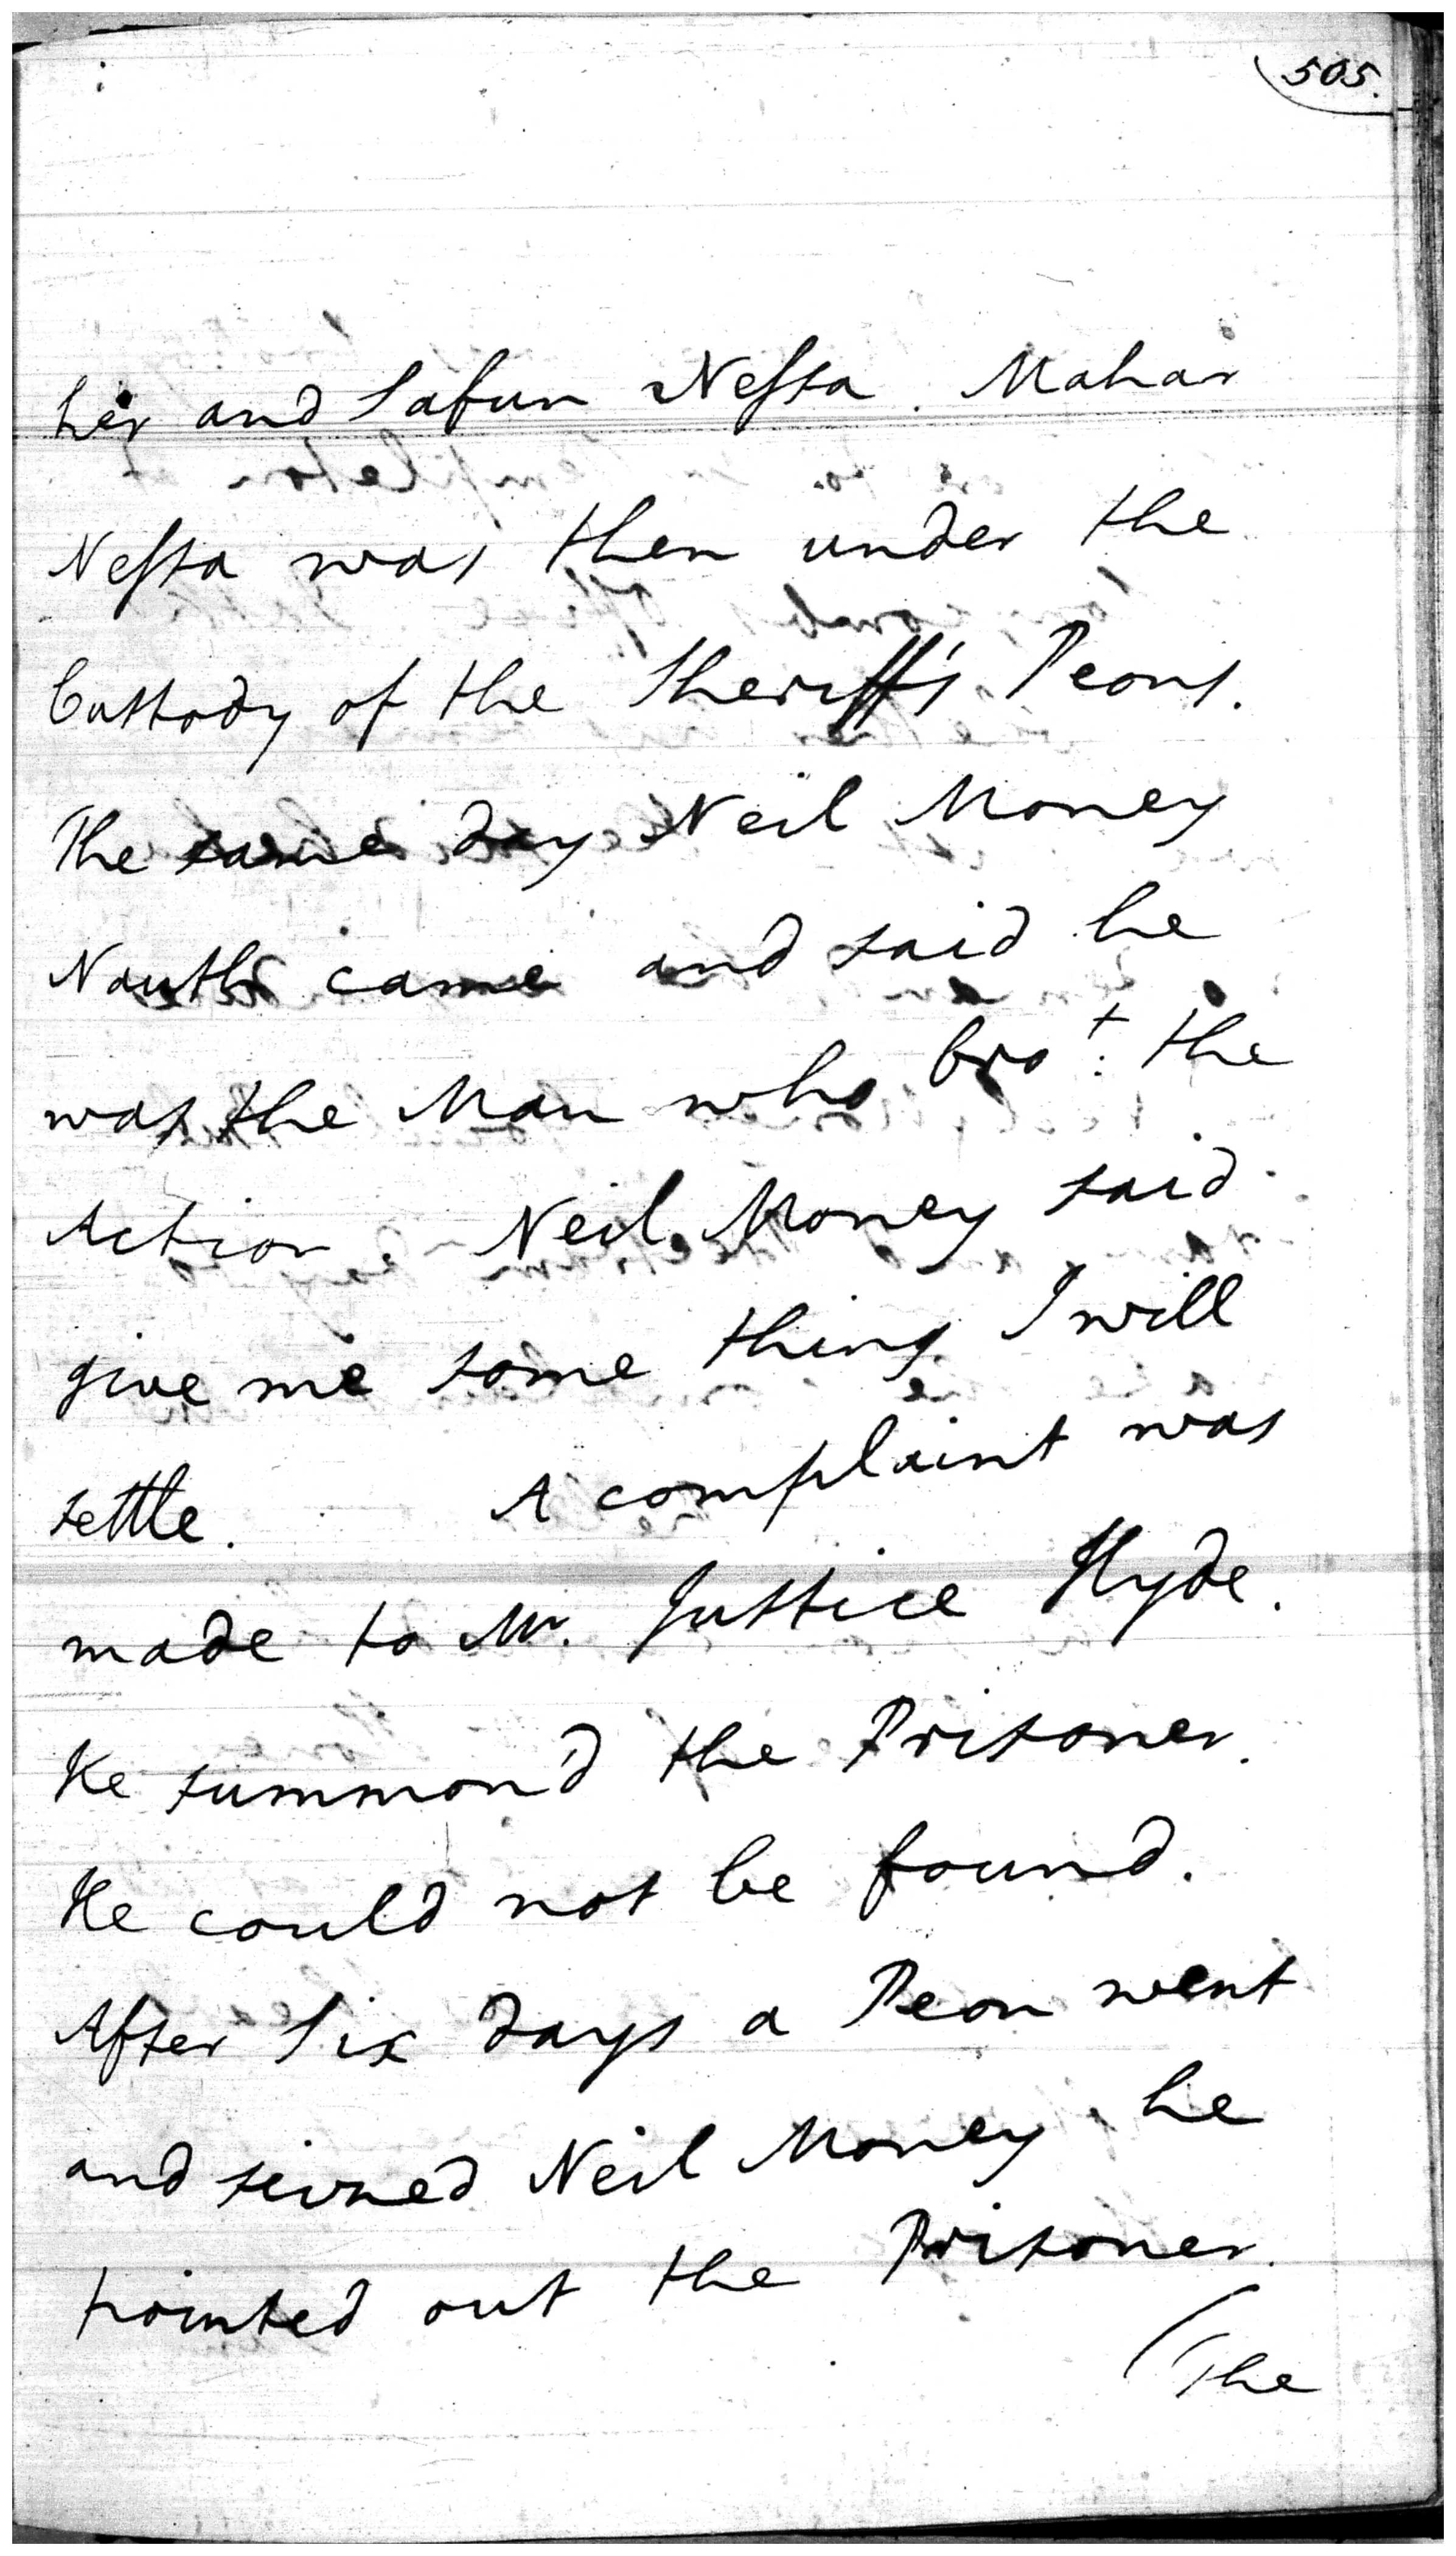 505.
her and Safun Nessa. Mahar
Nessa was then under the
Custody of the Sheriff's Peons.
The same day Neil Money
Nauth came and said he
was the Man who bro:t the
Action. Neil Money said
give me some thing I will
settle. A complaint was
made to Mr. Justice Hyde.
He summon'd the Prisoner.
He could not be found.
After Six days a Peon went
and seized Neil Money he
pointed out the Prisoner.
(The